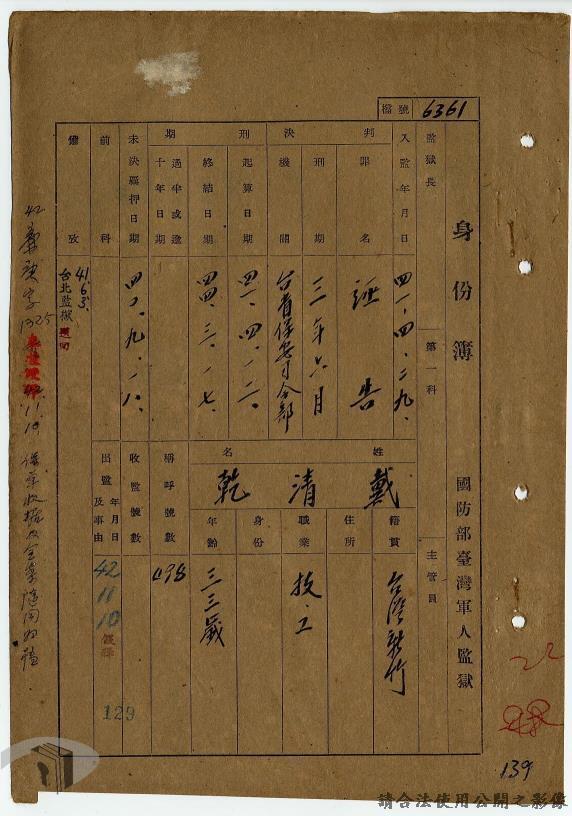 檔號 6361
身份簿 國防部臺灣軍人監獄
監獄長 第一科 主管員
入監年月日 四一.四.二九.
判決 罪名 誣告
刑期 三年六月
機關 台省保安司令部
刑期 起算日期 四一.四.一二.
終結日期 四四.三.一七.
過半或逾十年日期
未決羈押日期 四〇.九.一八.
前科
備攷 41.6.3. 台北監獄
姓名 戴清乾
籍貫 台灣新竹
住所
職業 技工
身份
年齡 三三歲
稱呼號數 1198
收監號數
出監年月日及事由 42 11 10 假釋
129
42
1325
11.19
139
請合法使用公開之影像